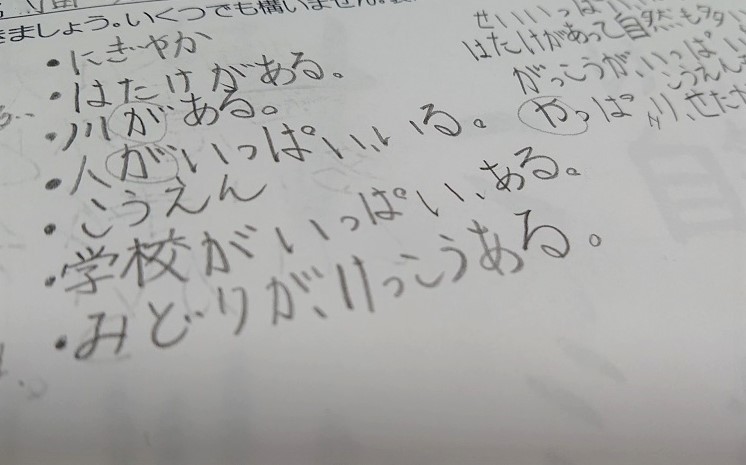 きましょう。いくつでも構いません。
・にぎやか
・はたけがある。
・川がある。
・人がいっぱいいる。
・こうえん
・学校がいっぱい、ある。
・みどりが、けっこうある。
はたけがあって自然も
がっこうが、いっぱい
こうえん
やっぱり、せたが